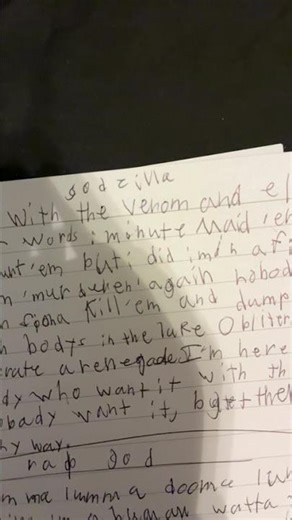 godzilla
With the Venom and el
words i minute Maid 'em
unt 'em but i did im in a fi
again nobod
Kill 'em and dump
bodys in the lake Obliter
erate a renegade I'm here
dy who want it with th
obady want it, the
hy way.
rap god
m ma lumma a dooma lum
human watta